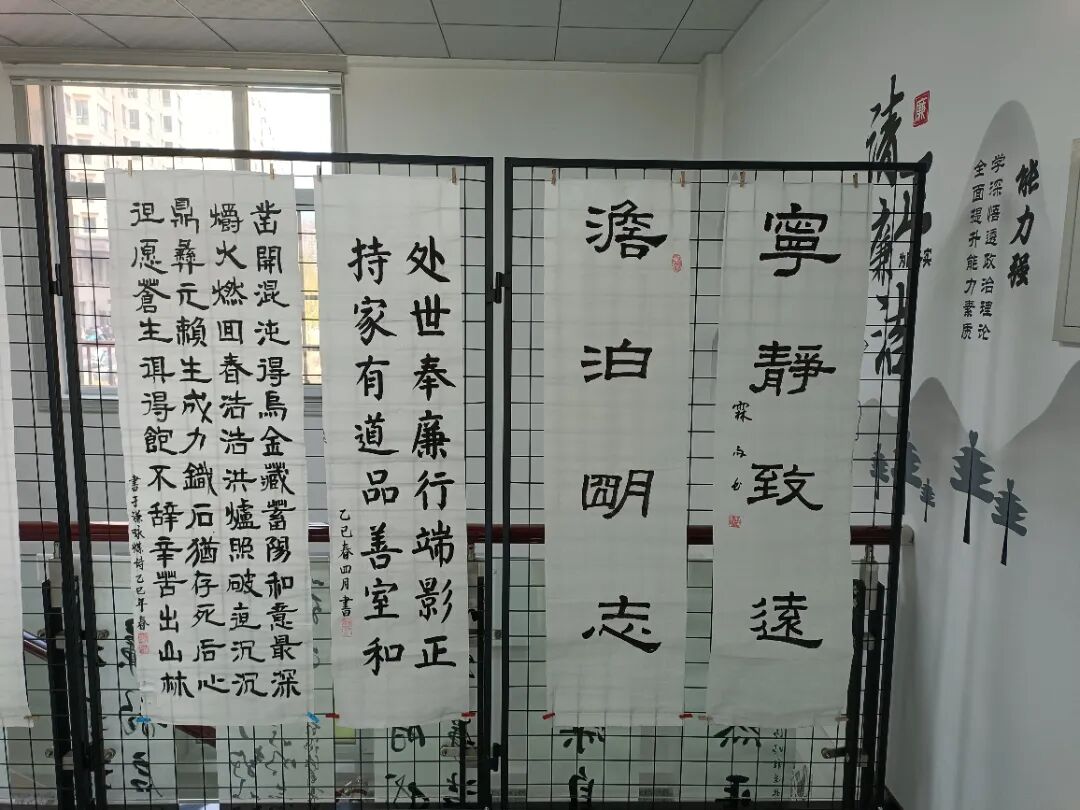 廉
能力强
学深悟透政治理论
全面提升能力素质
寧靜致遠
澹泊朙志
处世奉廉行端影正
持家有道品善室和
乙巳春四月書
凿開混沌得烏金藏蓄陽和意最深
爝火燃回春浩浩洪爐照破夜沉沉
鼎彝元賴生成力鐵石猶存死后心
但愿蒼生俱得飽不辞辛苦出山林
書于謙咏煤詩乙巳年春